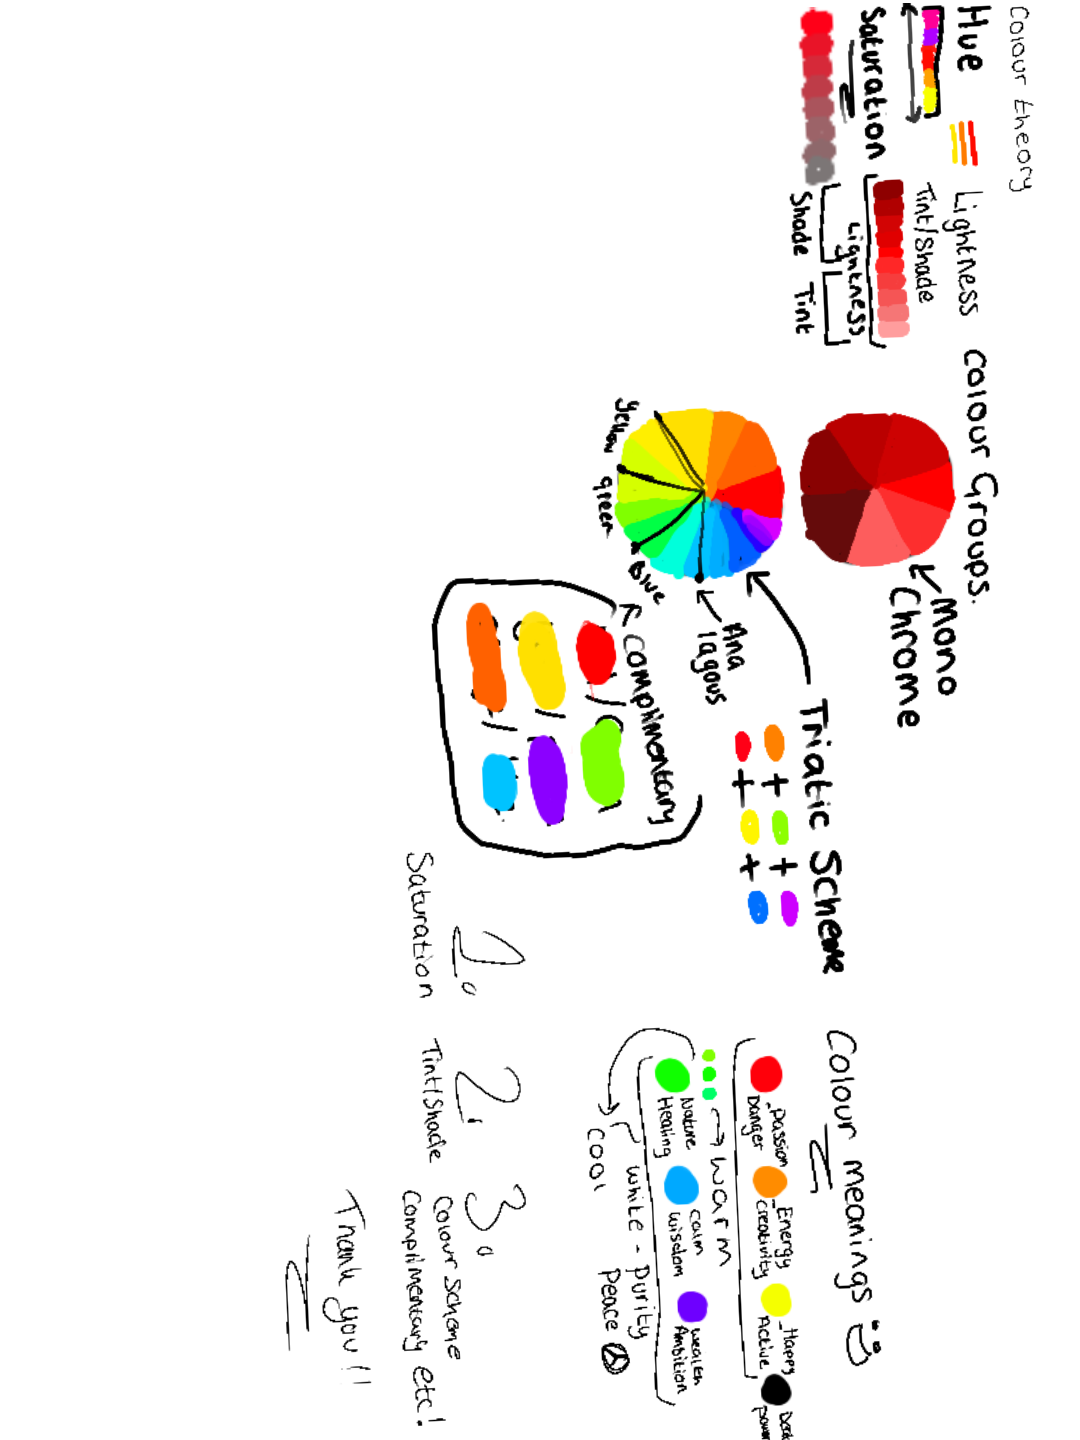 Colour theory
Hue
Saturation
Lightness
Tint/Shade
Lightness
Shade Tint
Colour Groups.
Mono
Chrome
Yellow green Blue
Ana
lagous
Triatic Scheme
+ +
+ +
Complimentary
Colour meanings
-Passion
Danger
-Energy
creativity
-Happy
Active
power
→ warm
Nature
Healing
calm
wisdom
wealth
Ambition
cool
white - Purity
Peace
1.
Saturation
2.
Tint/Shade
3.
Colour scheme
Complimentary etc!
Thank you!!